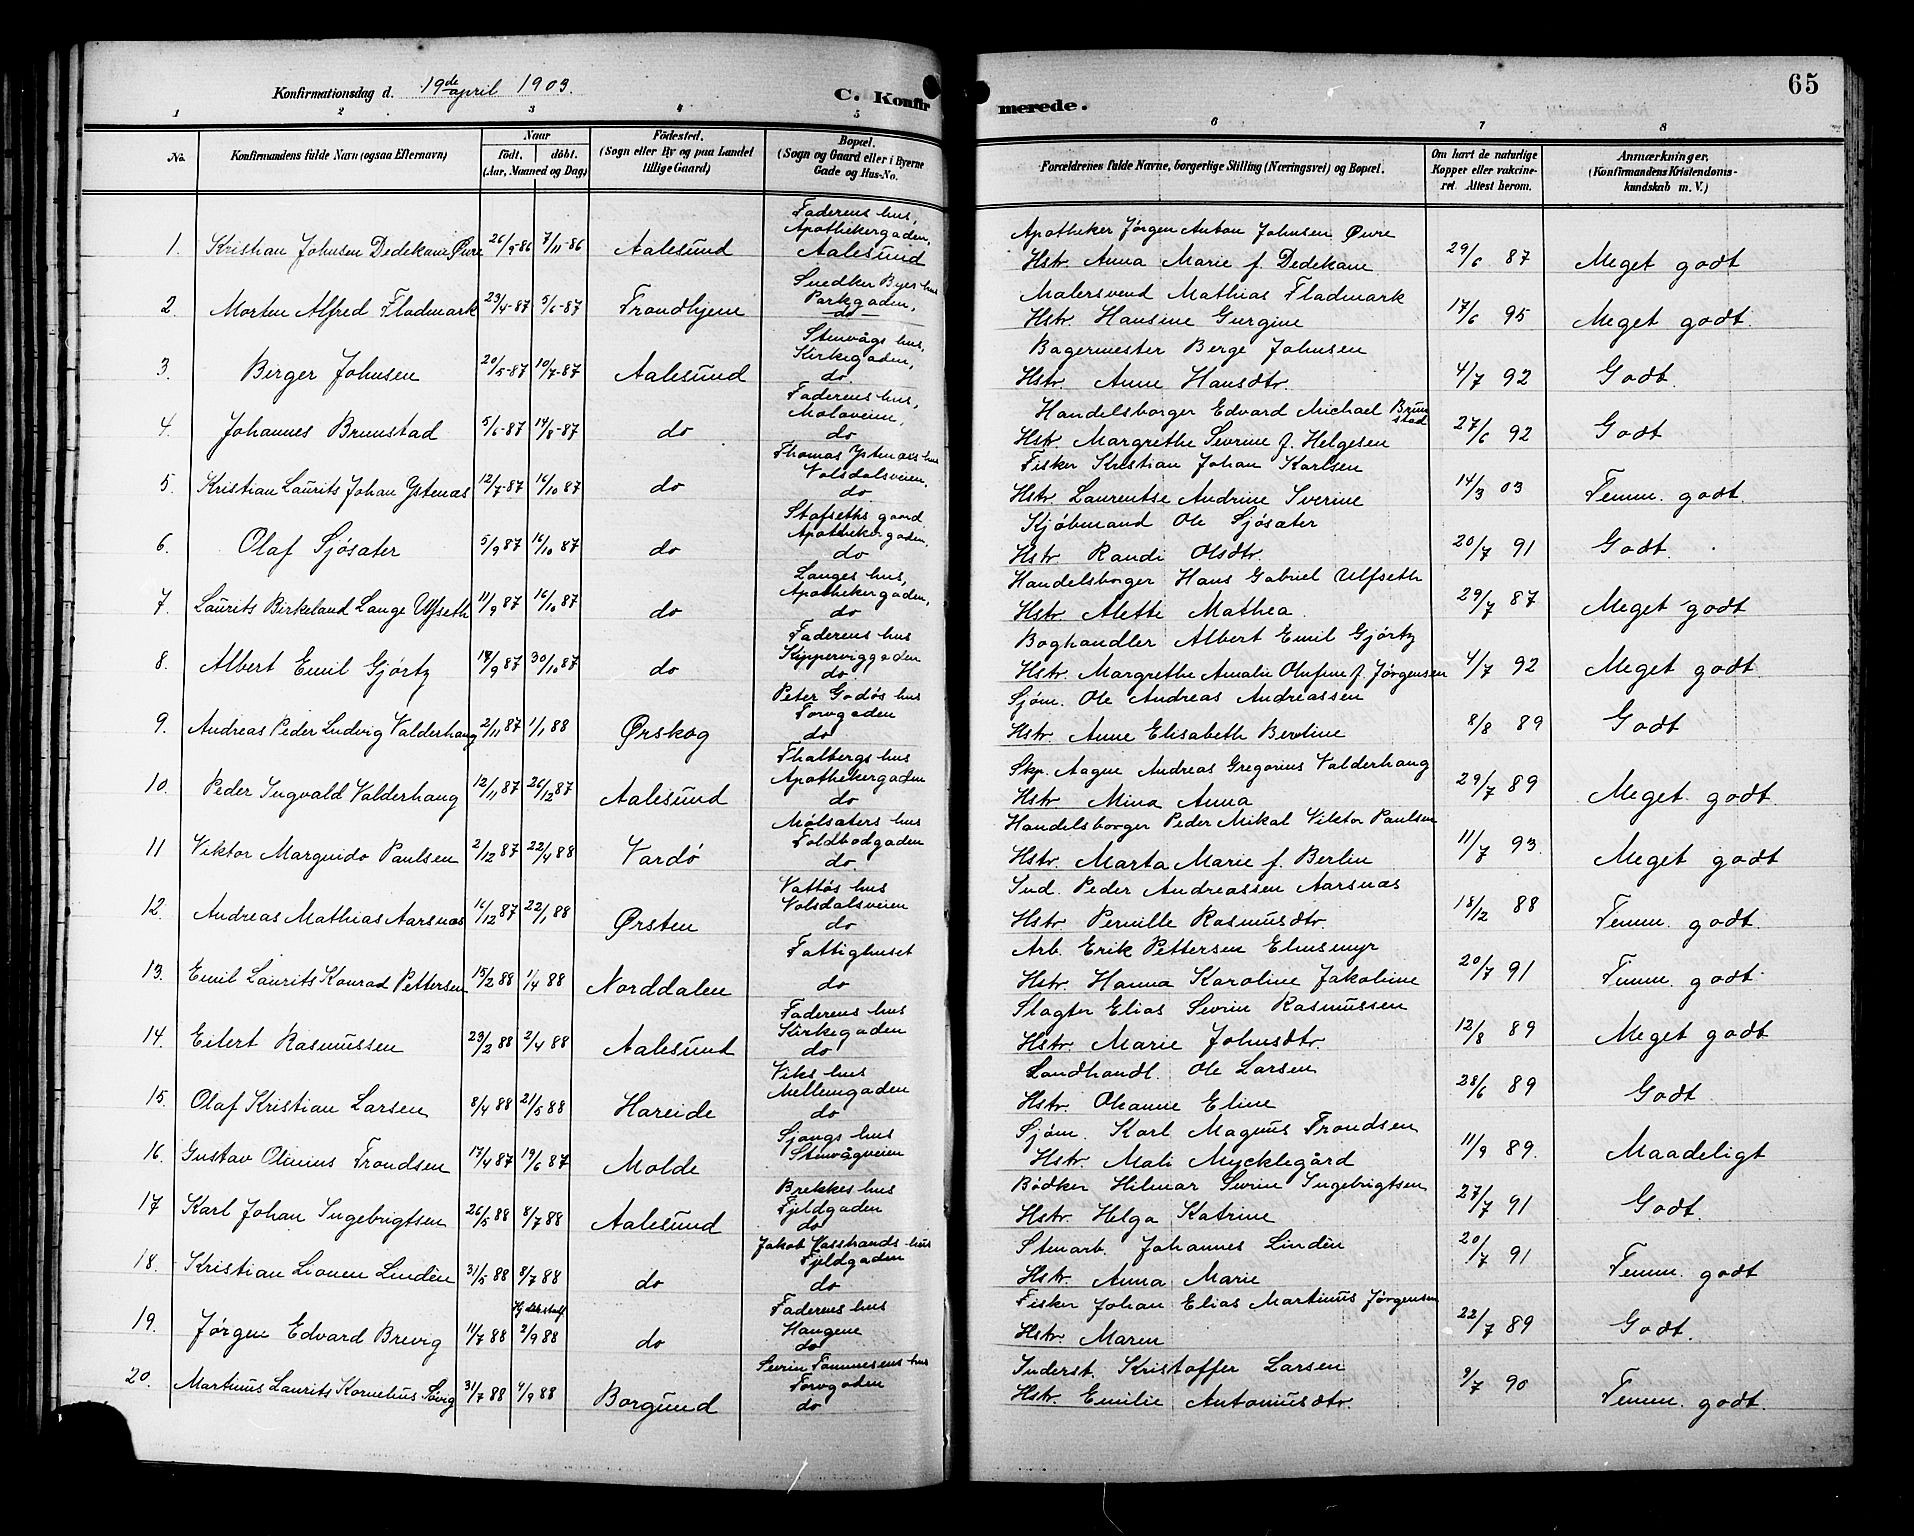 Konfirmationsdag d. 19de april 1903.
C. Konfir
merede.
65
1 2 3 4 5 6 7 8
No.
Konfirmandens fulde Navn (ogsaa Efternavn)
Naar
födt. döbt.
(Aar, Maaned og Dag)
Födested.
(Sogn eller By og paa Landet
tillige Gaard)
Bopæl.
(Sogn og Gaard eller i Byerne
Gade og Hus-No.
Forældrenes fulde Navne, borgerlige Stilling (Næringsvei) og Bopæl.
Om havt de naturlige
Kopper eller vakcine-
ret. Attest herom.
Anmærkninger.
(Konfirmandens Kristendoms-
kundskab m. V.)
Faderens hus,
Apothekergaden,
1. Kristian Johnsen Dedekam Øvre 26/9-86 7/11-86 Aalesund Aalesund
Apotheker Jørgen Anton Johnsen Øvre
Hstr. Anna Marie f. Dedekam 29/6 87 Meget godt
Snedker Byes hus
Parkgaden,
2. Morten Alfred Flademark 23/4-87 5/6-87 Trondhjem do
Malersvend Mathias Flademark
Hstr. Hansine Gurgine 17/6 95 Meget godt.
Stenvågs hus,
Kirkegaden,
3. Berger Johnsen 20/5-87 10/7-87 Aalesund do.
Bagermester Berge Johnsen
Hstr. Anne Hansdtr. 4/7 92 Godt.
Faderens hus,
Molovein,
4. Johannes Brunstad 5/6-87 14/8-87 do do
Handelsborger Edvard Michael Brunstad
Hstr. Margrethe Sevrine f. Helgesen 27/6 92 Godt
Thomas Ystenæs hus
Volsdalsveien,
5. Kristian Laurits Johan Ystenæs 12/7-87 16/10 87 do do
Fisker Kristian Johan Karlsen
Hstr. Laurentse Andrine Sverine 14/3 03 Temm. godt
Stafseths gaard
Apothekergaden,
6. Olaf Sjøsæter 5/9 87 16/10 87 do do
Kjøbmand Ole Sjøsæter
Hstr. Randi Olsdtr. 20/7 91 Godt.
Langes hus,
Apothekergaden,
7. Laurits Birkeland Lange Ulfseth 11/9 87 16/10 87 do do
Handelsborger Hans Gabriel Ulfseth
Hstr. Alette Mathea. 29/7 87 Meget godt
Faderens hus
Kipperviggaden
8. Albert Emil Gjørtz 19/9 87 30/10 87 do do
Boghandler Albert Emil Gjørtz
Hstr. Margrethe Amalie Olufine f. Jørgensen 4/7 92 Meget godt
Peter Godøs hus
Torvgaden
9. Andreas Peder Ludvig Valderhaug 2/11 87 1/1 88 Ørskog do
Sjøm. Ole Andreas Andreassen
Hstr. Anne Elisabeth Bertine 8/8 89 Godt
Thalbergs hus
Apothekergaden
10. Peder Ingvald Valderhaug 12/11 87 26/12 87 Aalesund do
Skp. Aagen Andreas Gregorius Valderhaug
Hstr. Mina Anna 29/7 89 Meget godt.
Mølsæters hus
Toldbodgaden
11 Viktor Marguido Paulsen 2/12 87 22/4 88 Vardø do
Handelsborger Peder Mikal Viktor Paulsen
Hstr. Marta Marie f. Berlin 11/7 93. Meget godt
Vattøs hus
Volsdalsveien
12. Andreas Mathias Aarsnæs 16/12 87 22/1 88 Ørsten do
Ind. Peder Andreassen Aarsnæs
Hstr. Pernille Rasmusdtr. 18/12 88 Temm. godt
Fattighuset
13. Emil Laurits Konrad Pettersen 15/2 88 1/4 88 Norddalen do
Arb. Erik Pettersen Elmsmyr
Hstr. Hanna Karoline Jakobine 20/7 91 Temm. godt
Faderens hus
Kirkegaden
14. Eilert Rasmussen 23/2 88 2/4 88 Aalesund do
Slagter Elias Sevrin Rasmussen
Hstr. Marie Johnsdtr. 12/8 89 Meget godt
Viks hus
Mellemgaden
15. Olaf Kristian Larsen 8/4 88 21/5 88 Hareide do
Landhandl. Ole Larsen
Hstr. Ohanne Eline 28/6 89 Godt
Sjongs hus
16. Gustav Olinius Trondsen 17/4 87 19/6 87 Molde Stenvågveien
Sjøm. Karl Magnus Trondsen
Hstr. Mali Mycklegård 11/9 89. Maadeligt
Brekkes hus
Fjeldgaden
17 Karl Johan Ingebrigtsen 26/5 88 8/7 88 Aalesund do
Bødker Hilmar Sevrin Ingebrigtsen
Hstr. Helga Katrine 27/7 91 Godt.
Jakob Vasstrands hus
Fjeldgaden
18. Kristian Lionen Lindèn 31/5 88 8/7 88 do do
Stenarb. Johannes Lindèn
Hstr. Anna Marie 20/7 91 Temm. godt
Faderens hus
Haugene
19. Jørgen Edvard Brevig 11/7 88 2/9 88 do do
Fisker Johan Elias Martinus Jørgensen
Hstr. Maren 22/7 89 Godt.
Sevrin Tønnesens hus
Torvgaden
20. Martinus Laurits Kornelius Søvig 31/7 88 9/9 88 Borgund do
Inderst. Kristoffer Larsen
Hstr. Emilie Antoniusdtr. 9/7 90 Temm. godt.